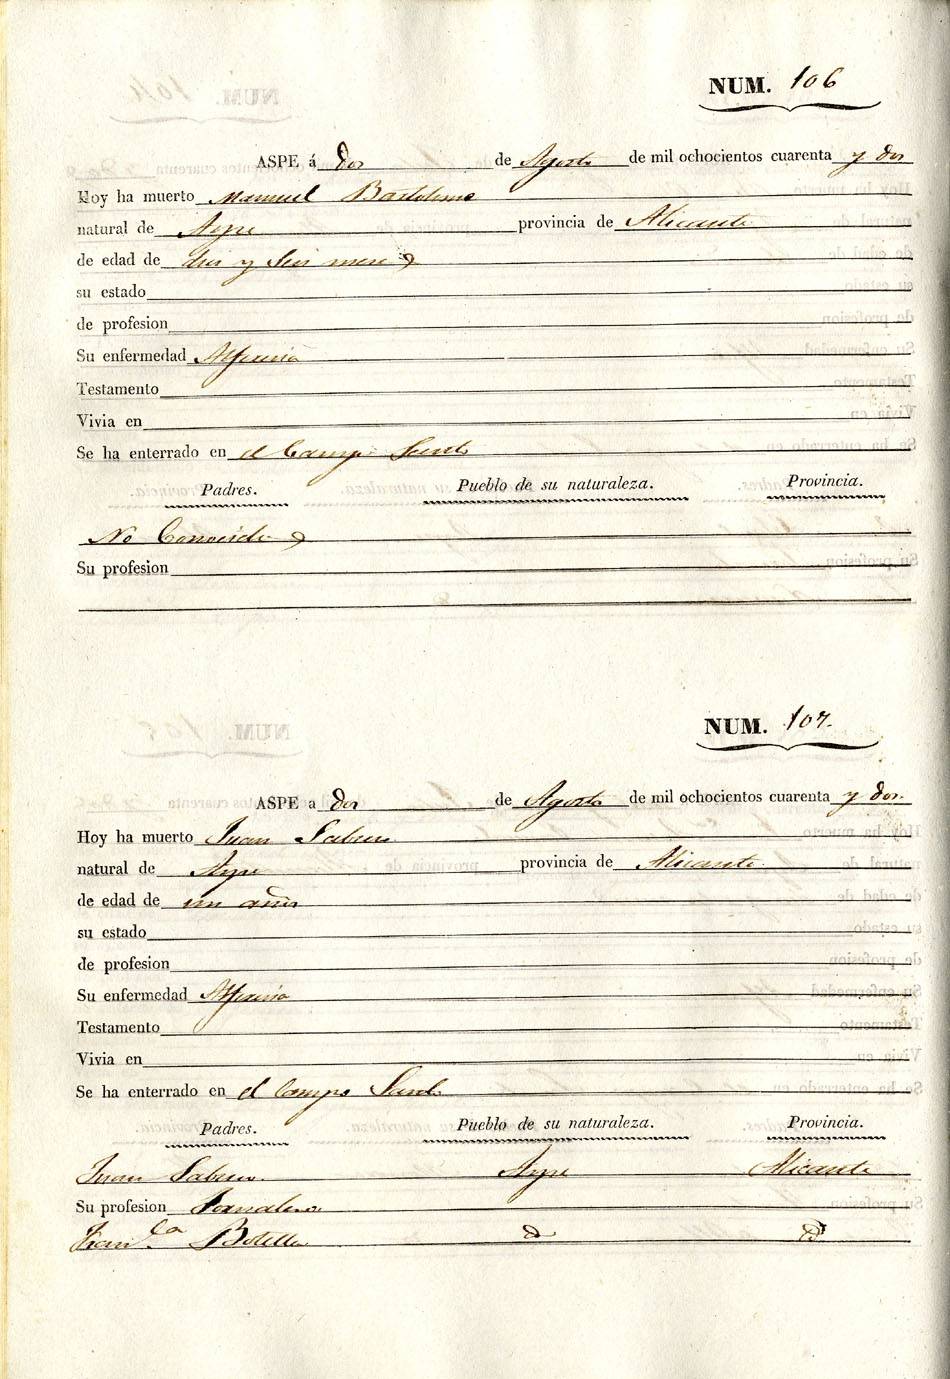 NUM. 106
ASPE á dos de Agosto de mil ochocientos cuarenta y dos
Hoy ha muerto Manuel Bartolome
natural de Aspe provincia de Alicante
de edad de dies y seis mese s
su estado
de profesion
Su enfermedad Alferecia
Testamento
Vivia en
Se ha enterrado en el Campo Santo
Padres. Pueblo de su naturaleza. Provincia.
No Conocido s
Su profesion
NUM. 107.
ASPE a dos de Agosto de mil ochocientos cuarenta y dos.
Hoy ha muerto Juan
natural de Aspe provincia de Alicante
de edad de un años
su estado
de profesion
Su enfermedad Alferecia
Testamento
Vivia en
Se ha enterrado en el Campo Santo
Padres. Pueblo de su naturaleza. Provincia.
Juan Aspe Alicante
Su profesion Jornalero
Fran.ca Botella